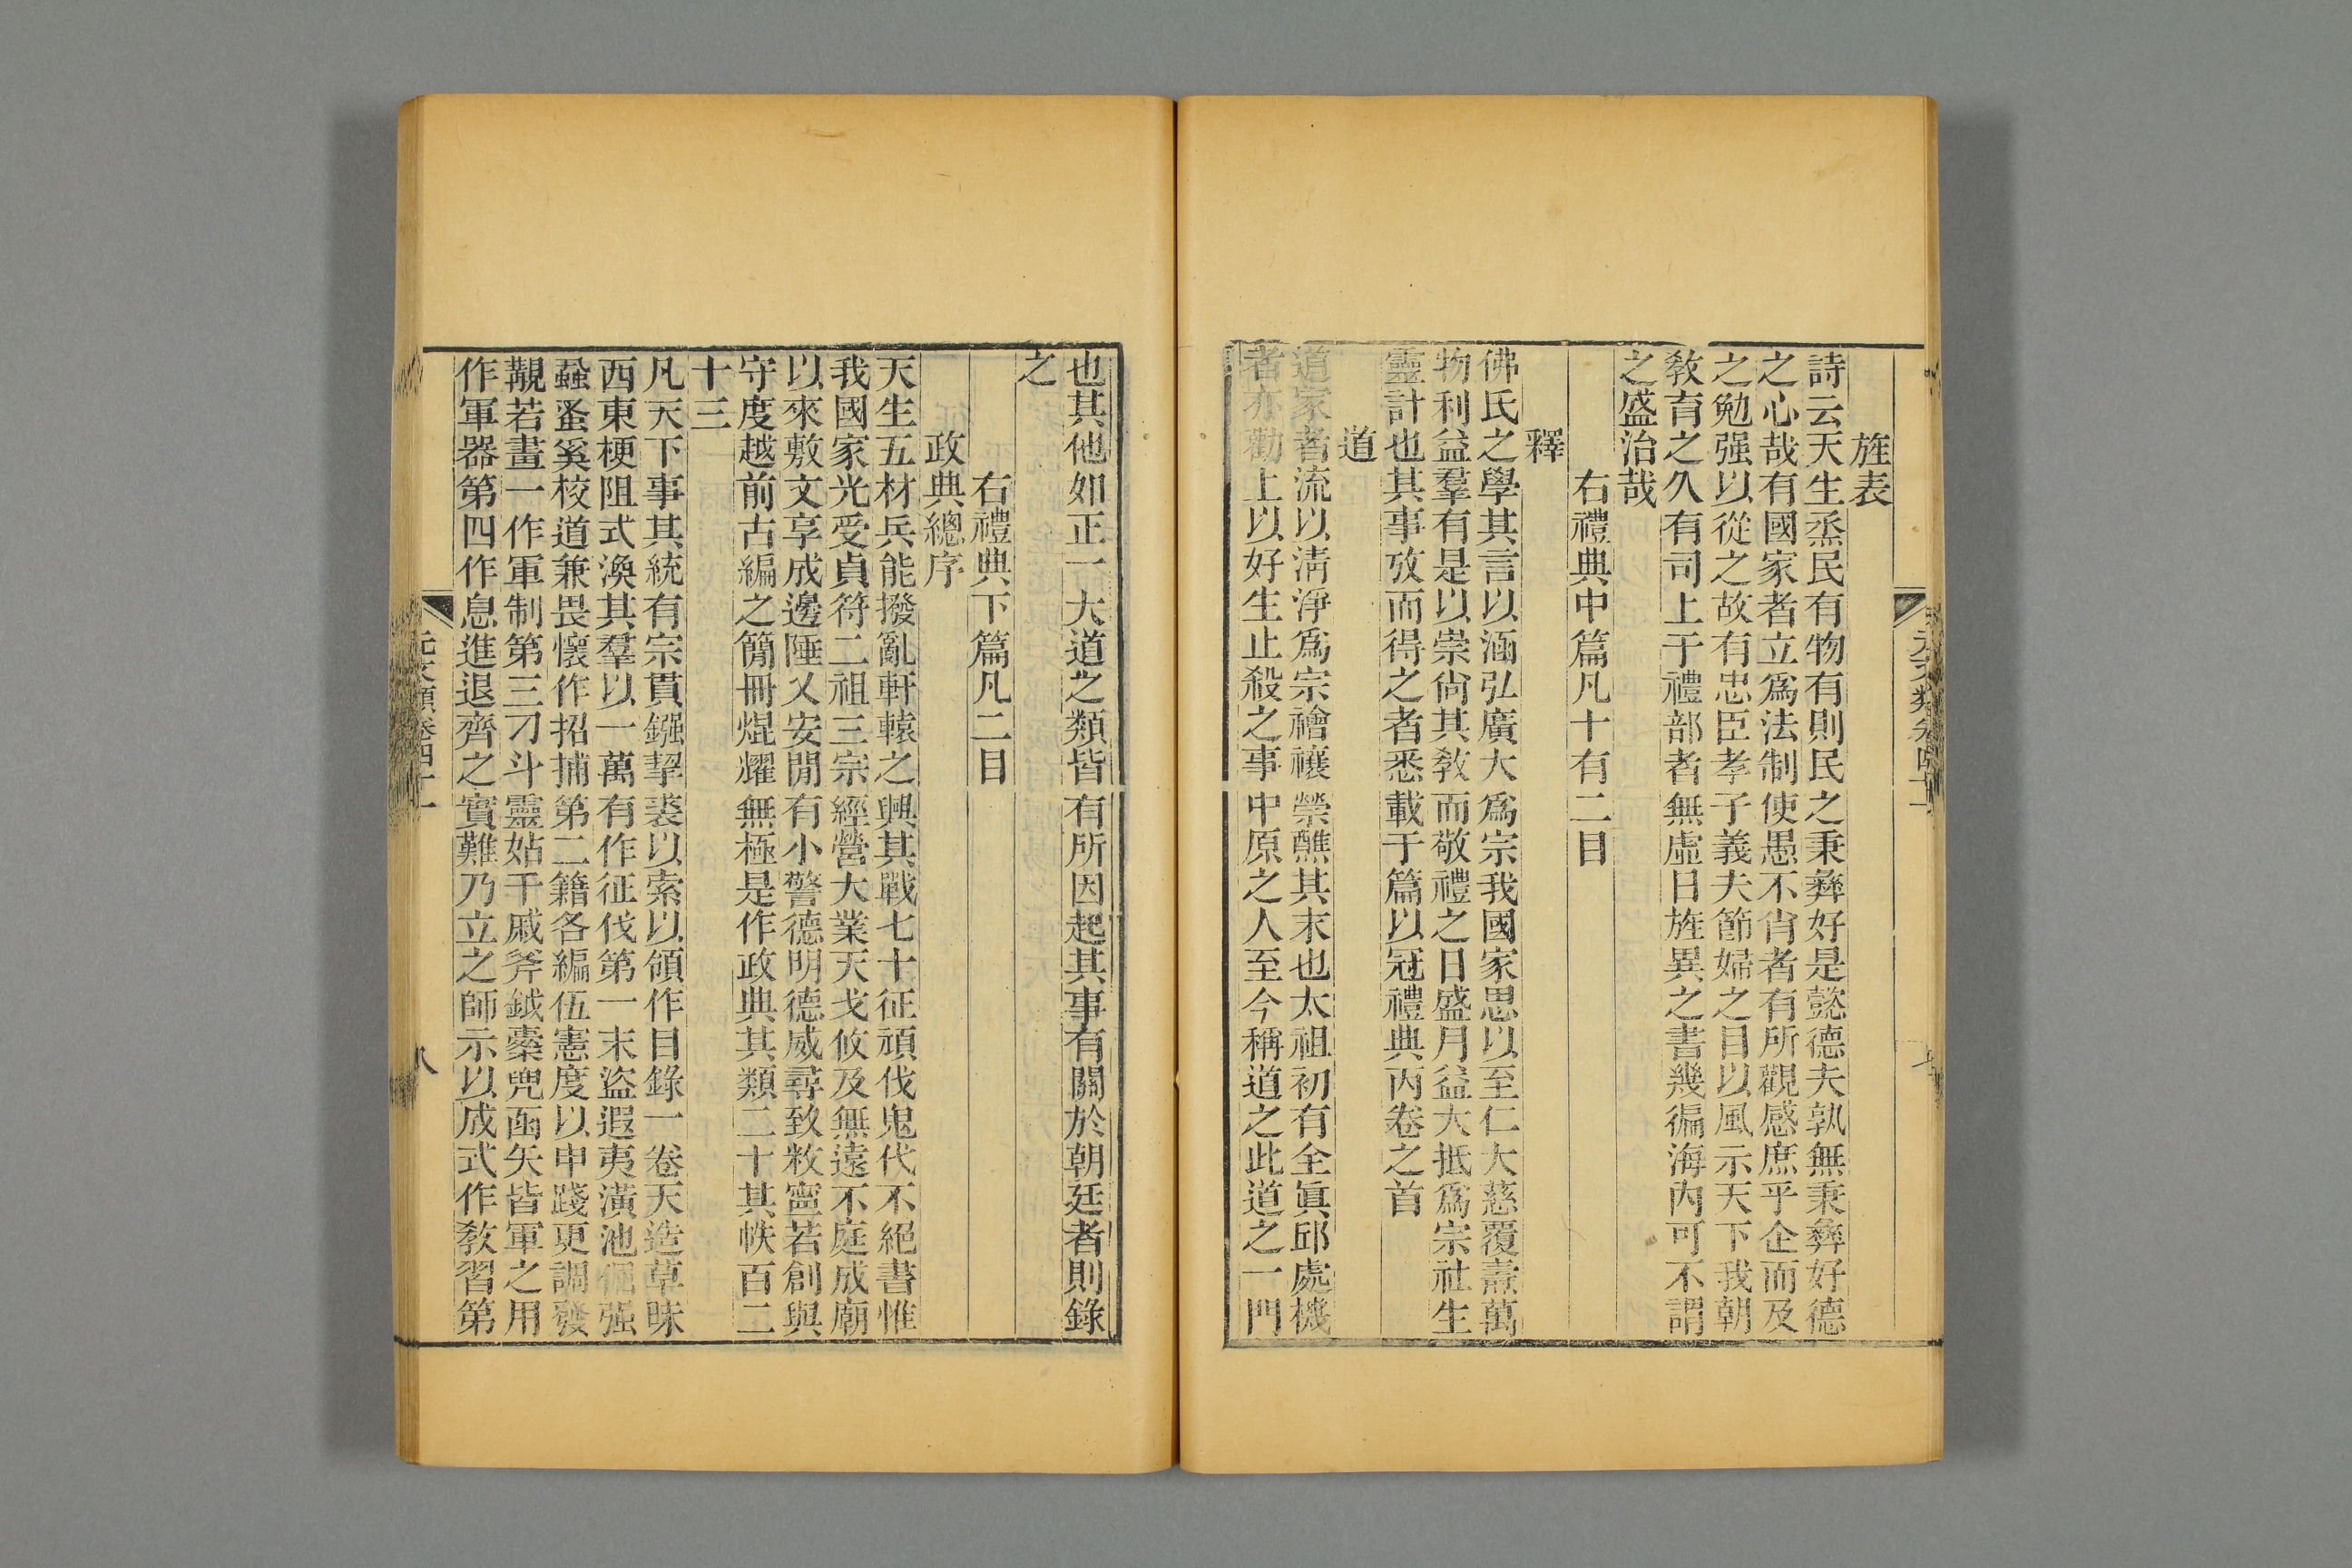 旌表
詩云天生烝民有物有則民之秉彝好是懿德夫孰無秉彝好德
之心哉有國家者立爲法制使愚不肖者有所觀感庶乎企而及
之勉强以從之故有忠臣孝子義夫節婦之目以風示天下我朝
敎育之久有司上于禮部者無虛日旌異之書幾徧海內可不謂
之盛治哉
右禮典中篇凡十有二目
釋
佛氏之學其言以涵弘廣大爲宗我國家思以至仁大慈覆燾萬
物利益羣有是以崇尙其敎而敬禮之日盛月益大抵爲宗社生
靈計也其事攷而得之者悉載于篇以冠禮典丙卷之首
道
道家者流以淸淨爲宗禬禳禜醮其末也太祖初有全眞邱處機
者亦勸上以好生止殺之事中原之人至今稱道之此道之一門
也其他如正一大道之類皆有所因起其事有關於朝廷者則錄
之
右禮典下篇凡二目
政典總序
天生五材兵能撥亂軒轅之興其戰七十征頑伐鬼代不絕書惟
我國家光受貞符二祖三宗經營大業天戈攸及無遠不庭成廟
以來敷文享成邊陲乂安閒有小警德明德威尋致敉寧若創與
守度越前古編之簡冊焜燿無極是作政典其類二十其帙百二
十三
凡天下事其統有宗貫鏹挈裘以索以領作目錄一卷天造草昧
西東梗阻式渙其羣以一萬有作征伐第一末盜遐夷潢池倔强
蝨蚤奚校道兼畏懷作招捕第二籍各編伍憲度以申踐更調發
觏若畫一作軍制第三刁斗靈姑干戚斧鉞櫜兜函矢皆軍之用
作軍器第四作息進退齊之實難乃立之師示以成式作敎習第
元文類卷四十一
八